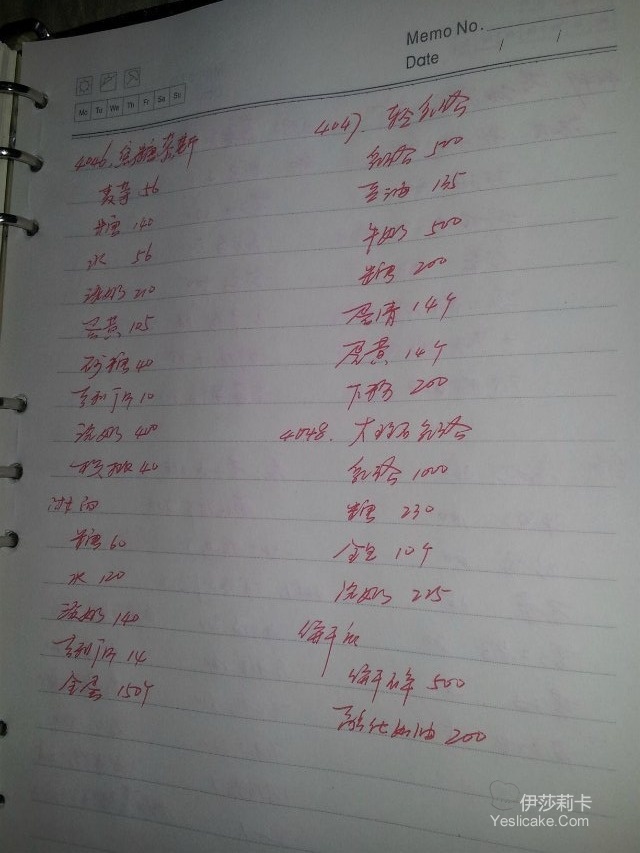 Memo No.
Date / /
Mo Tu We Th Fr Sa Su
4046. 焦糖慕斯
麦芽 56
糖 140
水 56
淡奶 210
蛋黄 105
砂糖 40
吉利丁片 10
淡奶 400
40
糖 60
水 120
淡奶 140
吉利丁片 14
全蛋 150个
4047. 轻乳酪
乳酪 500
黄油 135
牛奶 500
糖 200
蛋清 14个
蛋黄 14个
下粉 200
4048. 大理石乳酪
乳酪 1000
糖 230
全蛋 10个
淡奶 225
饼干底
饼干碎 500
融化奶油 200
伊莎莉卡
Yeslicake.Com